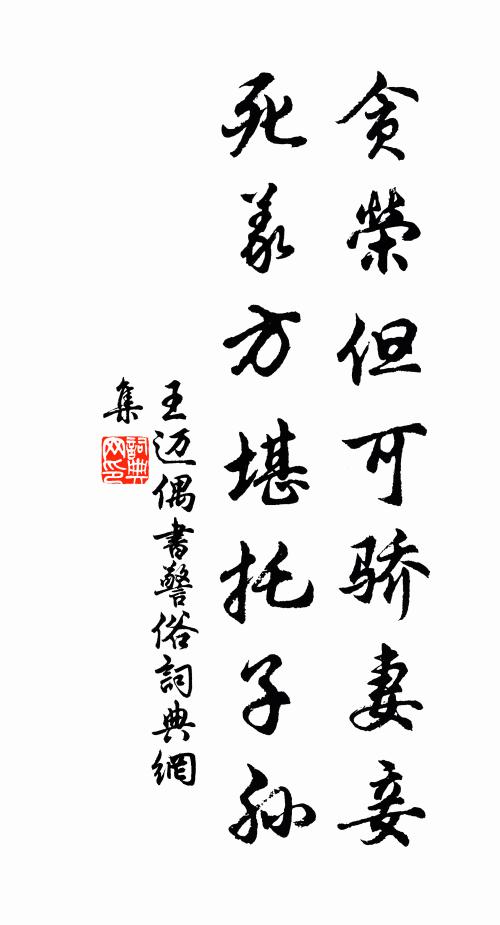 贪榮但可骄妻妾
死义方堪托子孙
王迈偶书警俗詞典網
集
詞典
网印